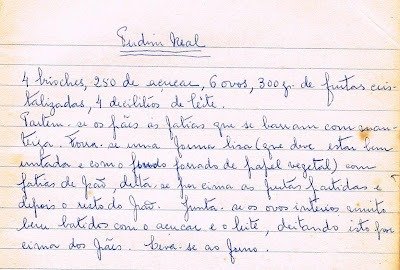 Pudim Real
4 brioches, 250 de açucar, 6 ovos, 300 g. de frutas cris-
talizadas, 4 decilitros de leite.
Partem-se os pães às fatias que se barram com man-
teiga. Forra-se uma forma lisa (que deve estar bem
untada e com o fundo forrado de papel vegetal) com
fatias de pão, deita-se por cima as frutas partidas e
depois o resto do pão. Junta-se os ovos inteiros muito
bem batidos com o açucar e o leite, deitando isto por
cima dos pães. Leva-se ao forno.